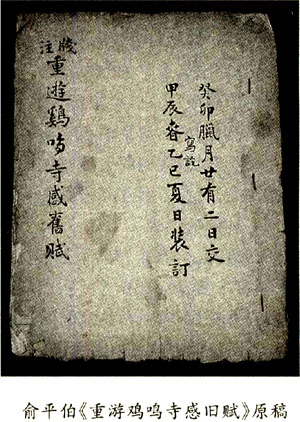 癸卯臘月廿有二日交
甲辰春寫訖乙巳夏日裝訂
注
重遊鷄鳴寺感舊賦
俞平伯《重游鸡呜寺感旧赋》原稿